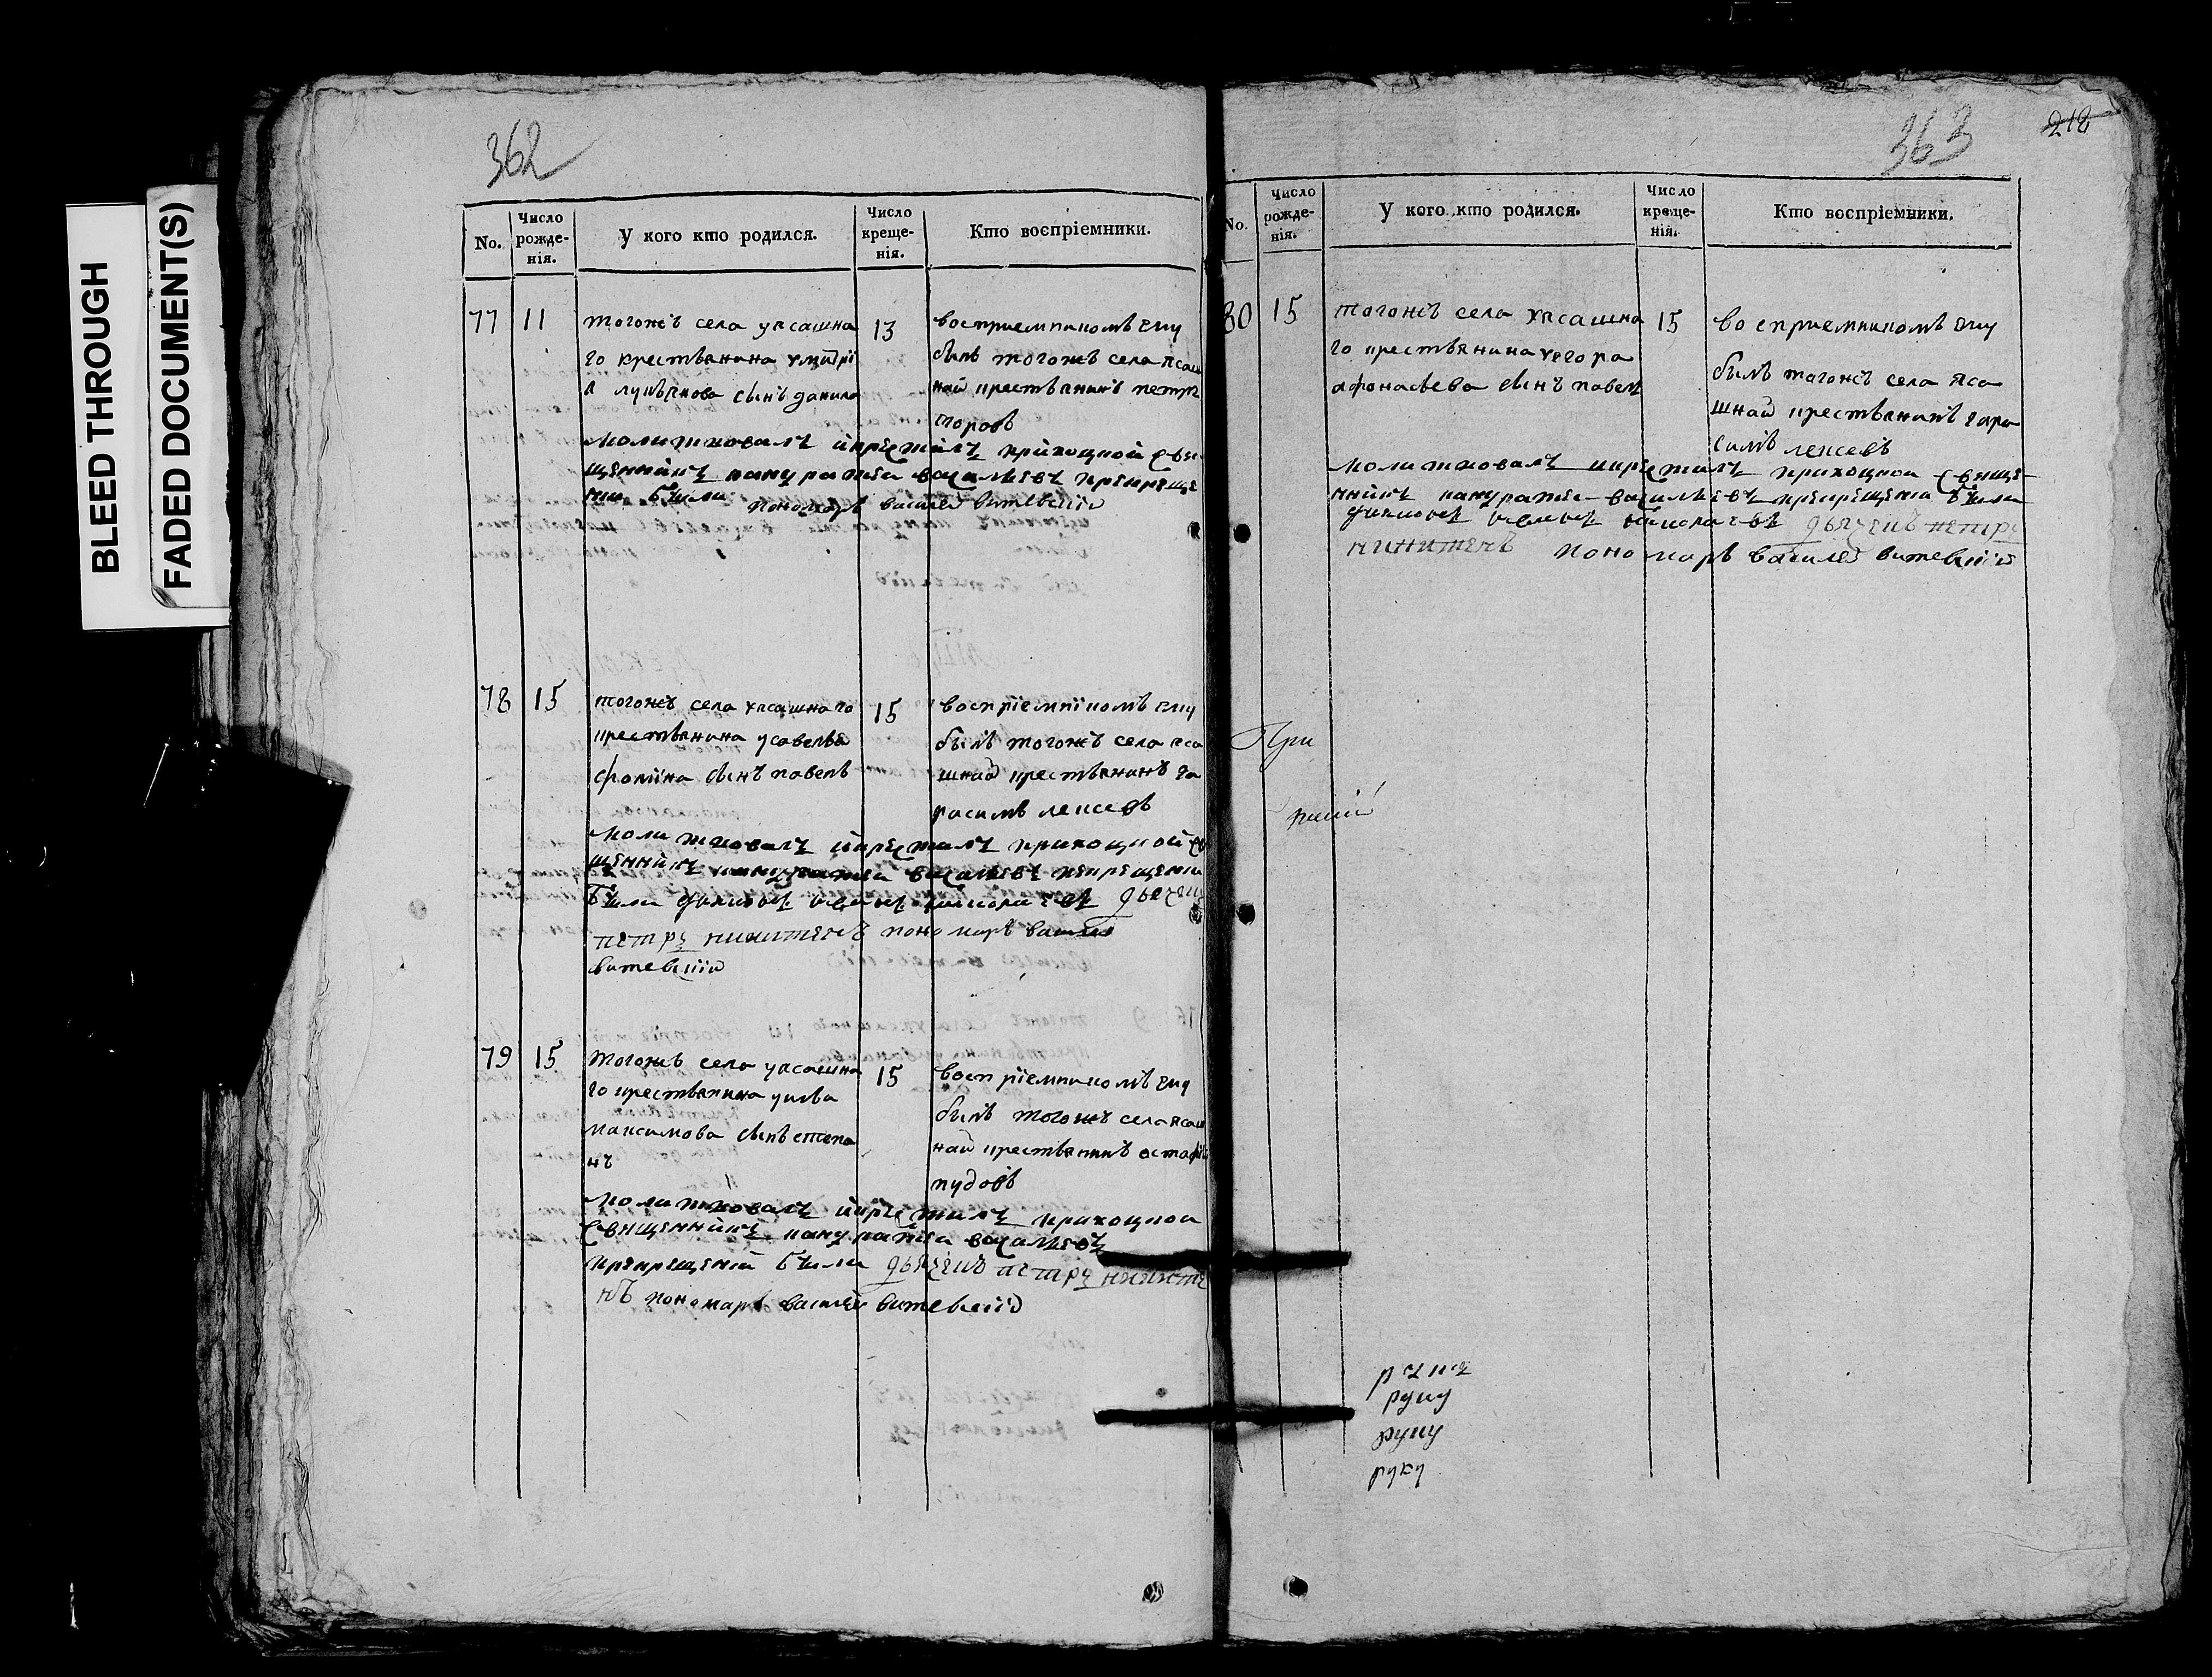 BLEED THROUGH
FADED DOCUMENT(S)
362
No.
Число рожде-нія.
У кого кто родился.
Число креще-нія.
Кто воспріемники.
77
11
тогожъ села уясашна
го крестьянина умитрі
я лукьянова сынъ данило
13
восприемникомъ ему
былъ тогожъ села ясаш
най крестьянинъ петръ
молитвовалъ икрестилъ приходной свя
щенникъ кандратеи василиевъ прикреще
нии были пономарь василей витевский
78
15
тогожъ села уясашнаго
крестьянина усавелья
фомина сынъ павелъ
15
воспріемникомъ ему
былъ тогожъ села яса
шнай крестьянинъ га
расимъ лексевъ
молитвовалъ икрестилъ приходной св
щенникъ кандратеи василиевъ прикрещении
были дияконъ дьячекъ
петръ никитенъ пономарь василей
витевский
79
15
тогожъ села уясашна
го крестьянина уильи
максимова сынъ степа
нъ
15
воспріемникомъ ему
былъ тогожъ села ясаш
най крестьянинъ остафи
пудовъ
молитвовалъ икрестилъ приходнои
священникъ кандратеи василиевъ
прикрещении были дьячекъ петръ никите
нъ пономарь василей витевский
363
212
No.
Число рожде-нія.
У кого кто родился.
Число креще-нія.
Кто воспріемники.
80
15
тогожъ села уясашна
го крестьянина уегора
афонасьева сынъ павелъ
15
восприемникомъ ему
былъ тогожъ села яса
шнай крестьянинъ гара
симъ лексевъ
молитвовалъ икрестилъ приходнои свяще
нникъ кандратеи василиевъ прикрещении были
дияконъ дьячекъ петръ
никитенъ пономарь василей витевский
При
руку
руку
руку
руку